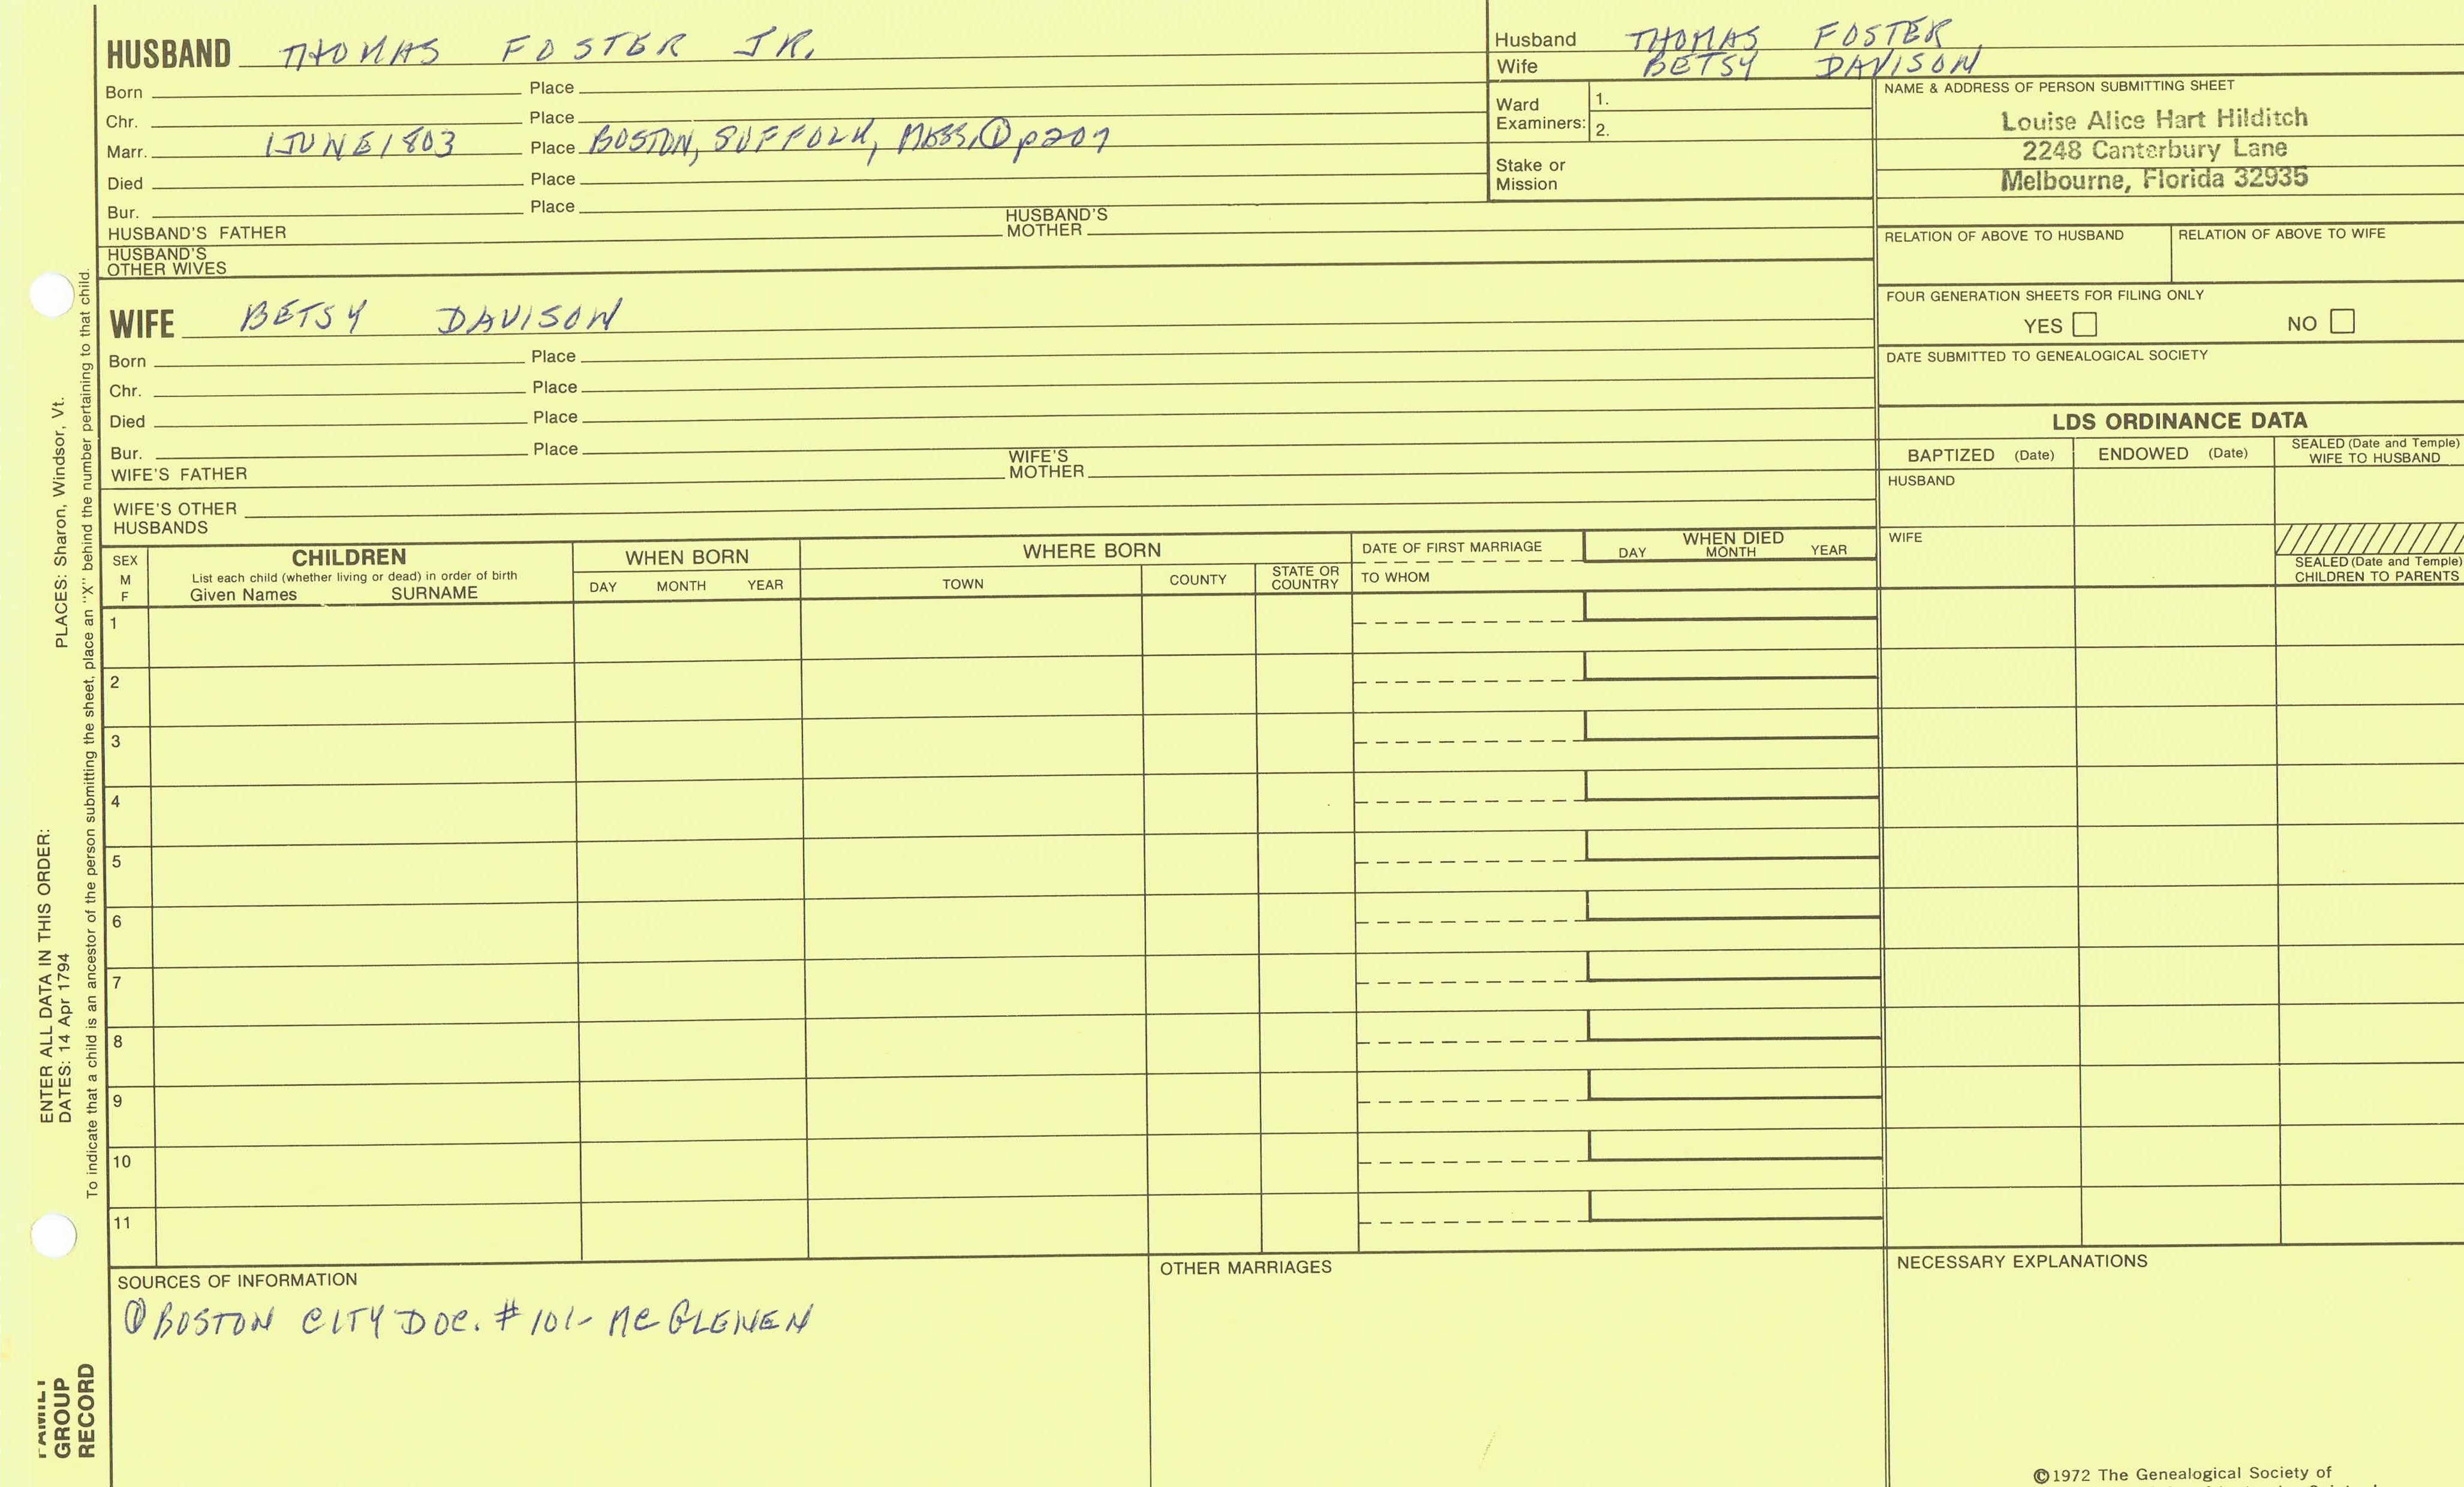 HUSBAND THOMAS FOSTER JR.
Born Place
Chr. Place
Marr. 1 JUNE 1803 Place BOSTON, SUFFOLK, MASS, ① p207
Died Place
Bur. Place
HUSBAND'S FATHER HUSBAND'S MOTHER
HUSBAND'S OTHER WIVES
Husband THOMAS FOSTER
Wife BETSY DAVISON
Ward Examiners: 1.
2.
Stake or Mission
NAME & ADDRESS OF PERSON SUBMITTING SHEET
Louise Alice Hart Hilditch
2248 Canterbury Lane
Melbourne, Florida 32935
RELATION OF ABOVE TO HUSBAND RELATION OF ABOVE TO WIFE
FOUR GENERATION SHEETS FOR FILING ONLY
YES NO
DATE SUBMITTED TO GENEALOGICAL SOCIETY
WIFE BETSY DAVISON
Born Place
Chr. Place
Died Place
Bur. Place
WIFE'S FATHER WIFE'S MOTHER
WIFE'S OTHER HUSBANDS
LDS ORDINANCE DATA
BAPTIZED (Date) ENDOWED (Date) SEALED (Date and Temple) WIFE TO HUSBAND
HUSBAND
WIFE
SEALED (Date and Temple) CHILDREN TO PARENTS
SEX M F
CHILDREN
List each child (whether living or dead) in order of birth
Given Names SURNAME
WHEN BORN
DAY MONTH YEAR
WHERE BORN
TOWN COUNTY STATE OR COUNTRY
DATE OF FIRST MARRIAGE
TO WHOM
WHEN DIED
DAY MONTH YEAR
1
2
3
4
5
6
7
8
9
10
11
SOURCES OF INFORMATION
① BOSTON CITY DOC. #101- MC GLENEN
OTHER MARRIAGES
NECESSARY EXPLANATIONS
©1972 The Genealogical Society of
FAMILY GROUP RECORD
ENTER ALL DATA IN THIS ORDER:
DATES: 14 Apr 1794 PLACES: Sharon, Windsor, Vt.
To indicate that a child is an ancestor of the person submitting the sheet, place an "X" behind the number pertaining to that child.